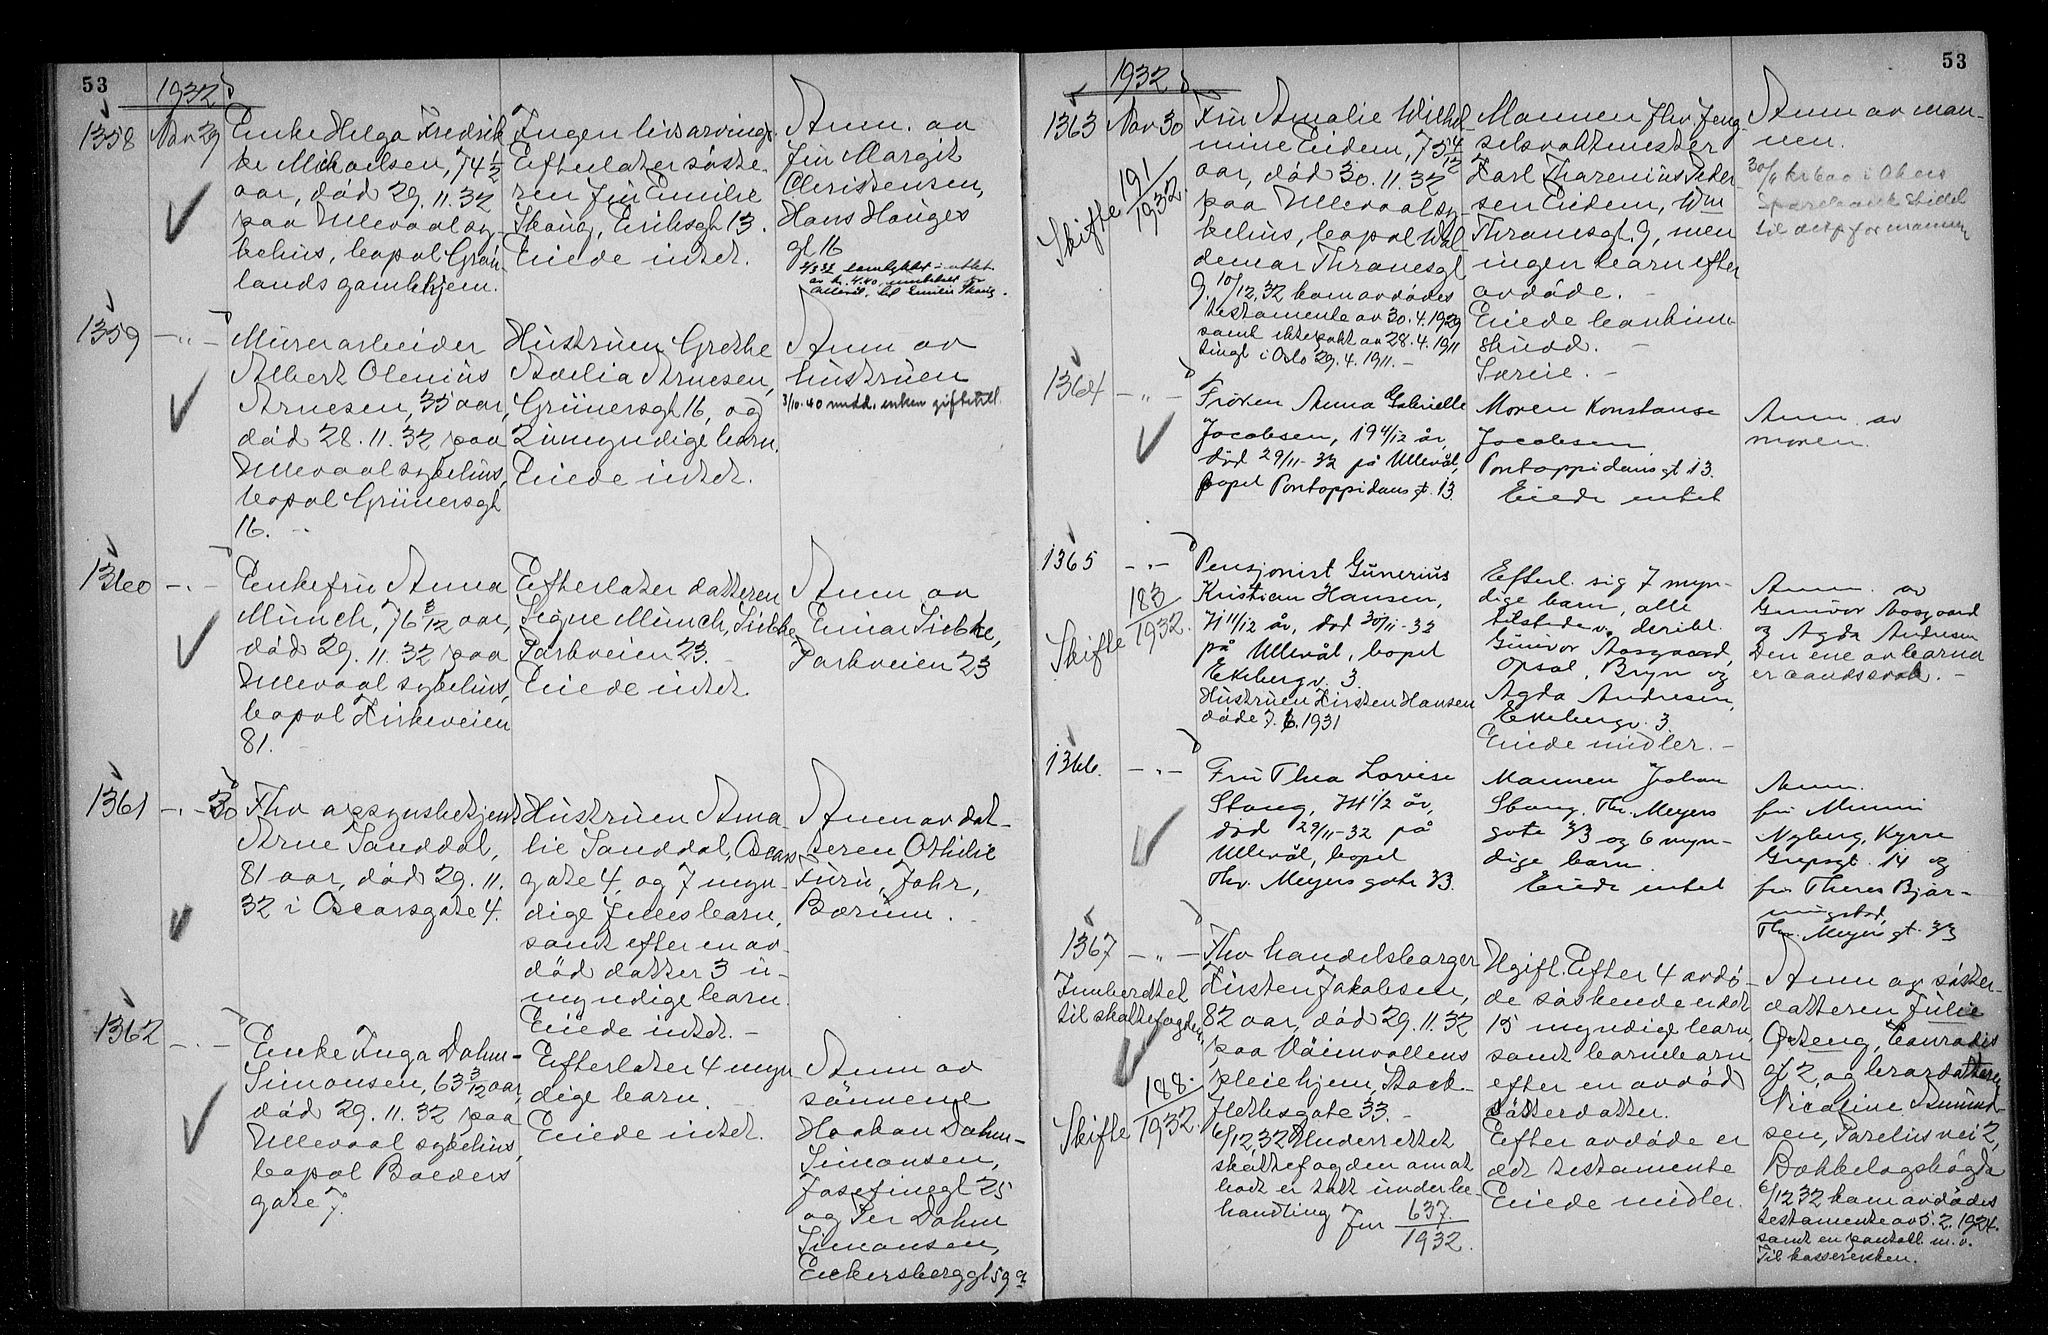 53
1932
1358
Nov 29
Enke Helga Fredrik-
ke Michaelsen, 74 1/2
aar, död 29.11.32
paa Ullevaal sy-
kehus, bopal Grön-
lands gamlehjem.
Ingen livsarving.
Efterlater söste-
ren fru Emilie
Skaug, Eriksgt 13.
Eiede intet.
Anm. av
fru Margit
Christensen,
Hans Hauges
gt 16
av kr. 4.40
Ullevål, til Emilie Skaug.
1359
- " -
Murerarbeider
Albert Olenius
Arnesen, 35 aar,
död 28.11.32 paa
Ullevaal sykehus,
bopal Grünersgt
16. -
Hustruen Grethe
Arnesen,
Grünersgt 16, og
2 umyndige barn.
Eiede intet.
Anm av
hustruen
3/10.40 medd. enken giftetill.
1360
- " -
Enkefru Anna
Münch, 76 3/12 aar,
död 29.11.32 paa
Ullevaal sykehus,
bopal Kirkeveien
81. -
Efterlater datteren
Signe Münch,
Parkveien 23. -
Eiede intet.
Anm av
Einar
Parkveien 23
1361
- " - 30
Fhv opsynsbetjent
Arne Sanddal,
81 aar, död 29.11.
32 i Oscarsgate 4.
Hustruen Ama-
lie Sanddal, Oscars
gate 4, og 7 myn
dige felles barn,
samt efter en av-
död datter 3 u-
myndige barn.
Eiede intet. -
Anm av dat-
teren Othilie
Furu, Jahr,
Bærum. -
1362
- " -
Enke Inga Dahm-
Simonsen, 63 3/12 aar,
död 29.11.32 paa
Ullevaal sykehus,
bopal Boeders
gate 7.
Efterlater 4 myn
dige barn. -
Eiede intet.
Anm av
sönnene
Haakon Dahm-
Simonsen,
Josefinegt 25
og Per Dahm
Simonsen,
Eckersberggt 59 a
53
1932
1363
Nov 30
Skifte 191/1932.
Fru Amalie Wilhel-
mine Eidem, 75 4/12
aar, död 30.11.32
paa Ullevaal sy-
kehus, bopal Wal-
demar Thranesgt
9. 10/12.32 kom avdödes
testamente av 30.4.1929
samt ektepakt av 28.4.1911
tingl i Oslo 29.4.1911. -
Mannen fhv feng-
selsvaktmester
Karl Peder-
sen Eidem, Wm
Thranesgt. 9, men
ingen barn efter
avdöde. -
Eiede bankinn-
skudd. -
Særeie. -
Anm av man-
nen.
til for mannen
1364
- " -
Fröken Anna Gabrielle
Jacobsen, 19 4/12 år,
död 29/11-32 på Ullevål,
bopel Pontoppidans gt. 13.
Moren Konstanse
Jacobsen
Pontoppidans gt 13.
Eiede intet
Anm. av
moren.
1365
- " -
Skifte 183/1932.
Pensjonist Gunerius
Kristian Hansen,
71 11/12 år, död 30/11-32
på Ullevål, bopel
Ekebergv. 3.
Hustruen Kirsten Hansen
döde 7.6.1931
Efterl. sig 7 myn-
dige barn, alle
tilstede v. deribl.
Gunvor Aasgaard,
Opsal, Bryn og
Agda Andresen,
Ekebergv. 3.
Eiede midler. -
Anm. av
Gunvor Aasgaard
og Agda Andresen
Den ene av barna
er aandssvak. -
1366.
- " -
Fru Thea Lovise
Stang, 74 1/2 år,
död 29/11-32 på
Ullevål, bopel
Thv. Meyers gate 33.
Mannen Johan
Stang, Thv. Meyers
gate 33 og 6 myn-
dige barn.
Eiede intet
Anm.
fru Minni
Nyberg, Kyrre
Grepsgt. 14 og
fru Theres Bjør-
ningstad,
Thv. Meyers gt. 33
1367
- " -
Innberettet
til skattefogden
Skifte 188/1932.
Fhv handelsborger
Kirsten Jakobsen,
82 aar, död 29.11.32
paa Vaimvollens
pleiehjem, Stock-
flethsgate 33. -
6/12.32 Underrettet
skattefogden om at
boet er tatt under be-
handling Jnr 637/1932.
Ugift. Efter 4 avdö-
de söskende endel
15 myndige barn,
samt barnebarn
efter en avdöd
sösterdatter.
Efter avdöde er
det testamente
Eiede midler.
Anm av söster-
datteren Julie
Østeng, Conradis
gt 2, og brordatteren
Nicoline Amund-
sen, vei 2,
Bækkelagshögda
6/12 32 kom avdödes
testamente av 5.2.1924.
samt en pantobl. m.v.
Til kassererken.